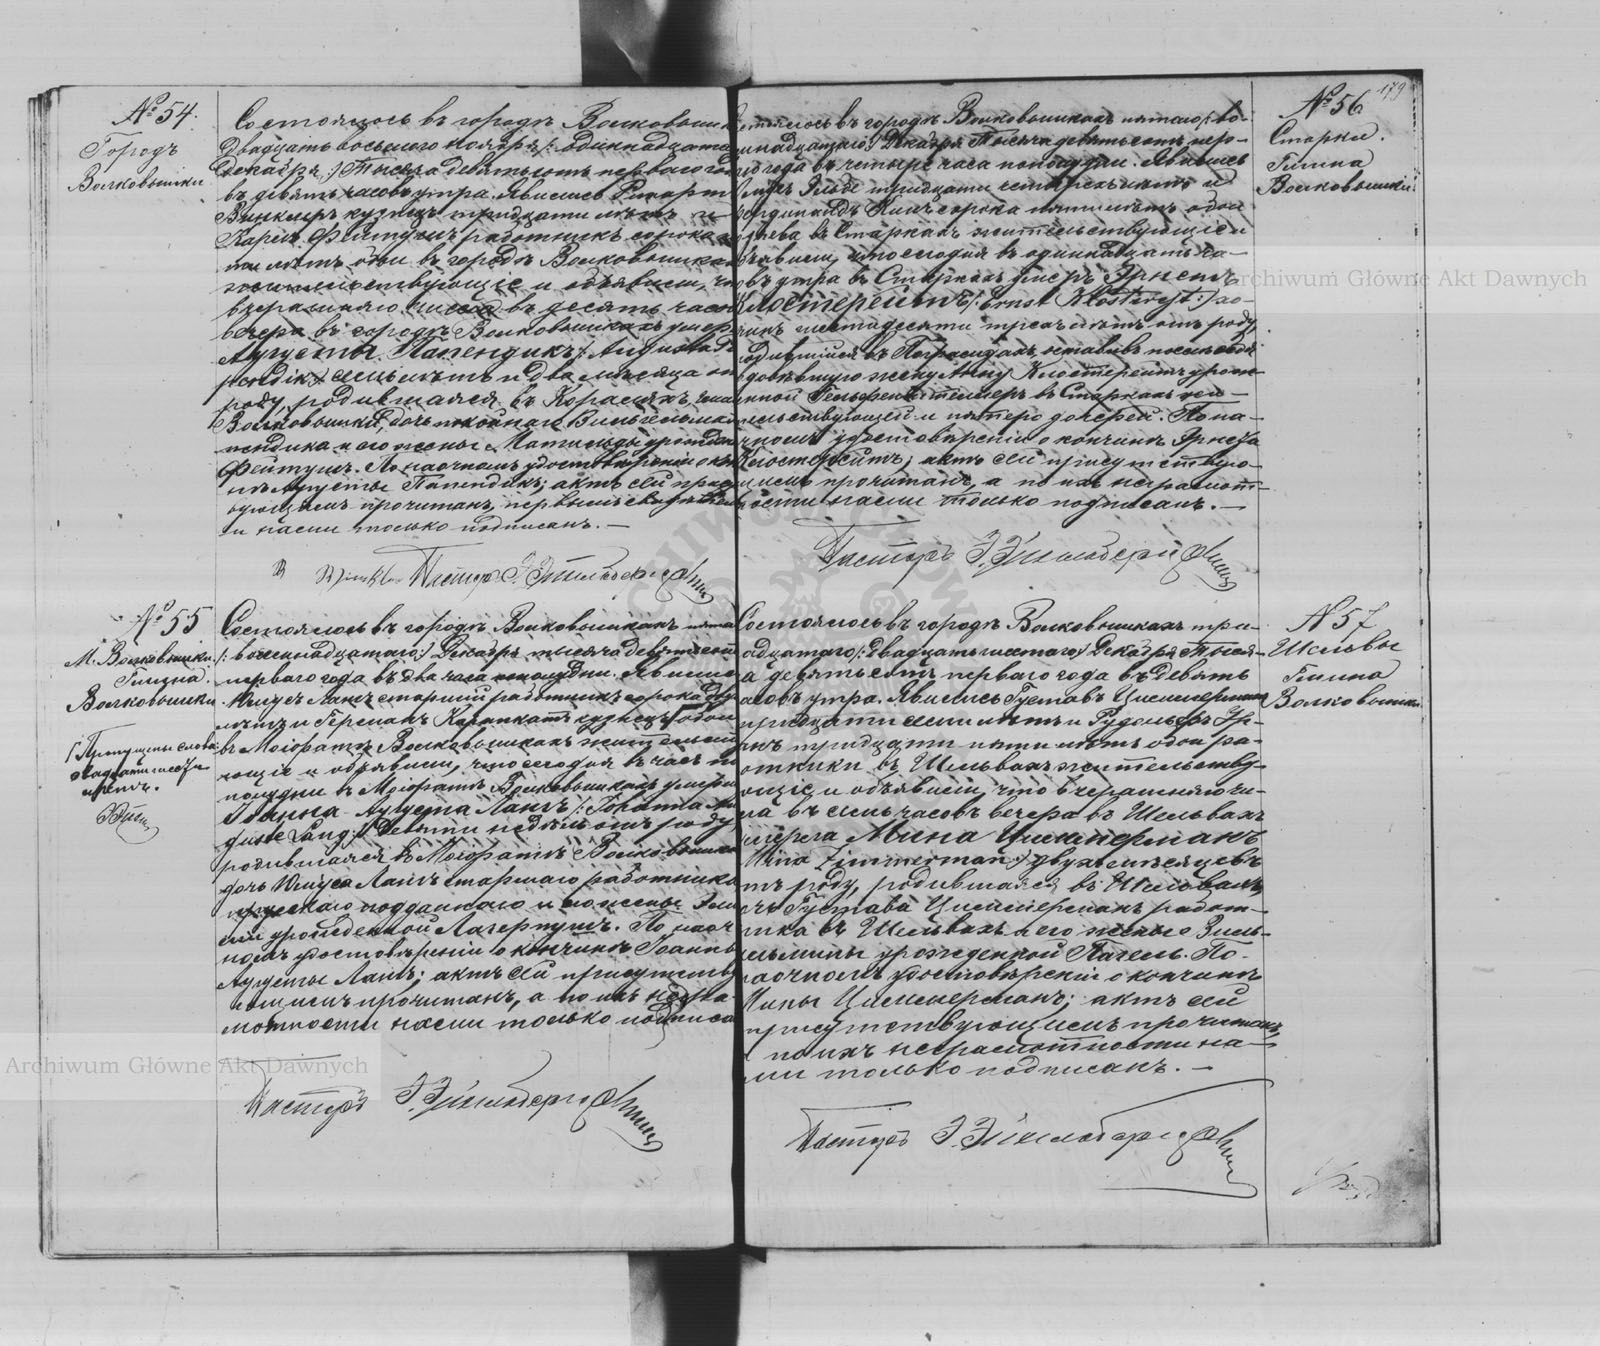 № 54.
Городъ
Волковышки
Состоялось въ городѣ Волковышк
Двадцать восьмого Ноября /: одиннадцата
Декабря :/ Тысяча девятьсотъ перваго года
въ девять часовъ утра. Явились Рихард
Винклеръ кузнецъ тридцати лѣтъ и
Карлъ Фейтумъ работникъ сорока
лѣтъ оба въ городѣ Волковышках
жительствующіе и объявили, ч
вчерашняго числа въ десять часо
вечера въ городѣ Волковышкахъ умер
Августа Папендикъ /: Augusta Pa
pendik :/ семь лѣтъ и два мѣсяца от
роду, родившаяся въ
Волковышки, дочь покойнаго Вильгельма
пендика и его жены Матильды урожден
Фейтумъ. По наочномъ удостовѣреніи о кон
нѣ Августы Папендикъ; актъ сей прис
вующимъ прочитанъ, первымъ свидѣтел
и нами только подписанъ. —
Winkler Пасторъ
№ 55
М. Волковышки.
Гмина
Волковышки.
/ Пропущены слова
Состоялось въ городѣ Волковышкахъ
/: восемнадцатаго :/ Декабря тысяча девятьсот
перваго года въ два часа пополудни. Явились
Юлиусъ Лангъ старшій работникъ сорока
лѣтъ и Германъ кузнецъ оба
въ Маіоратѣ Волковышкахъ жительств
ющіе и объявили, что сегодня въ часъ по
полудни въ Маіоратѣ Волковышкахъ умерла
Іоанна Августа Лангъ /: Johanna Au
guste Lang :/ девяти недѣль отъ роду,
родившаяся въ Маіоратѣ Волковышки
дочь Юлиуса Лангъ старшаго работника
прусскаго подданнаго и его жены
урожденной По наоч
номъ удостовѣреніи о кончинѣ Іоанны
Августы Лангъ; актъ сей присутству
ющимъ прочитанъ, а по ихъ негра
мотности нами только подписа
Пасторъ
179
№ 56
Старки.
Гмина
Волковышки.
стоялось въ городѣ Волковышкахъ пятаго /: во-
надцатаго :/ Декабря Тысяча девятьсотъ пер-
го года въ четыре часа пополудни. Явились
тридцати четырехъ лѣтъ и
рдинандъ сорока пяти лѣтъ оба
въ Старкахъ жительствующіе и
ъявили, что сегодня въ одинадцать ча-
въ утра въ Старкахъ умеръ Эрнстъ
Клостерейтъ /: Ernst Klostereyt :/ хо-
шестидесяти трехъ лѣтъ отъ роду,
одившійся въ оставивъ послѣ себя
вдовѣвшую жену Анну Клостерейтъ урож-
нной въ Старкахъ жи-
ельствующей и пятеро дочерей. По на-
чномъ удостовѣреніи о кончинѣ Эрнста
Клостерейтъ; актъ сей присутствую-
имъ прочитанъ, а по ихъ неграмот-
ности нами только подписанъ. —
Пасторъ
№ 57
Шельвы
Гмина
Волковышки.
Состоялось въ городѣ Волковышкахъ три-
адцатаго /: двадцать шестаго :/ Декабря Тыся-
а девятьсотъ перваго года въ девять
асовъ утра. Явились Густавъ Циммерманъ
тридцати семи лѣтъ и Рудольфъ
тридцати пяти лѣтъ оба ра-
отники въ Шельвахъ жительству-
ющіе и объявили, что вчерашняго чи-
ла въ семь часовъ вечера въ Шельвахъ
умерла Мина Циммерманъ
Mina Zimmerman :/ двухъ мѣсяцевъ
тъ роду, родившаяся въ Шельвахъ
чь Густава Циммерманъ работ-
ника въ Шельвахъ и его жены Виль-
ельмины урожденной Пагель. По
наочномъ удостовѣреніи о кончинѣ
Мины Циммерманъ; актъ сей
присутствующимъ прочитанъ,
по ихъ неграмотности на-
ми только подписанъ. —
Пасторъ
Archiwum Główne Akt Dawnych
Archiwum Główne Akt Dawnych